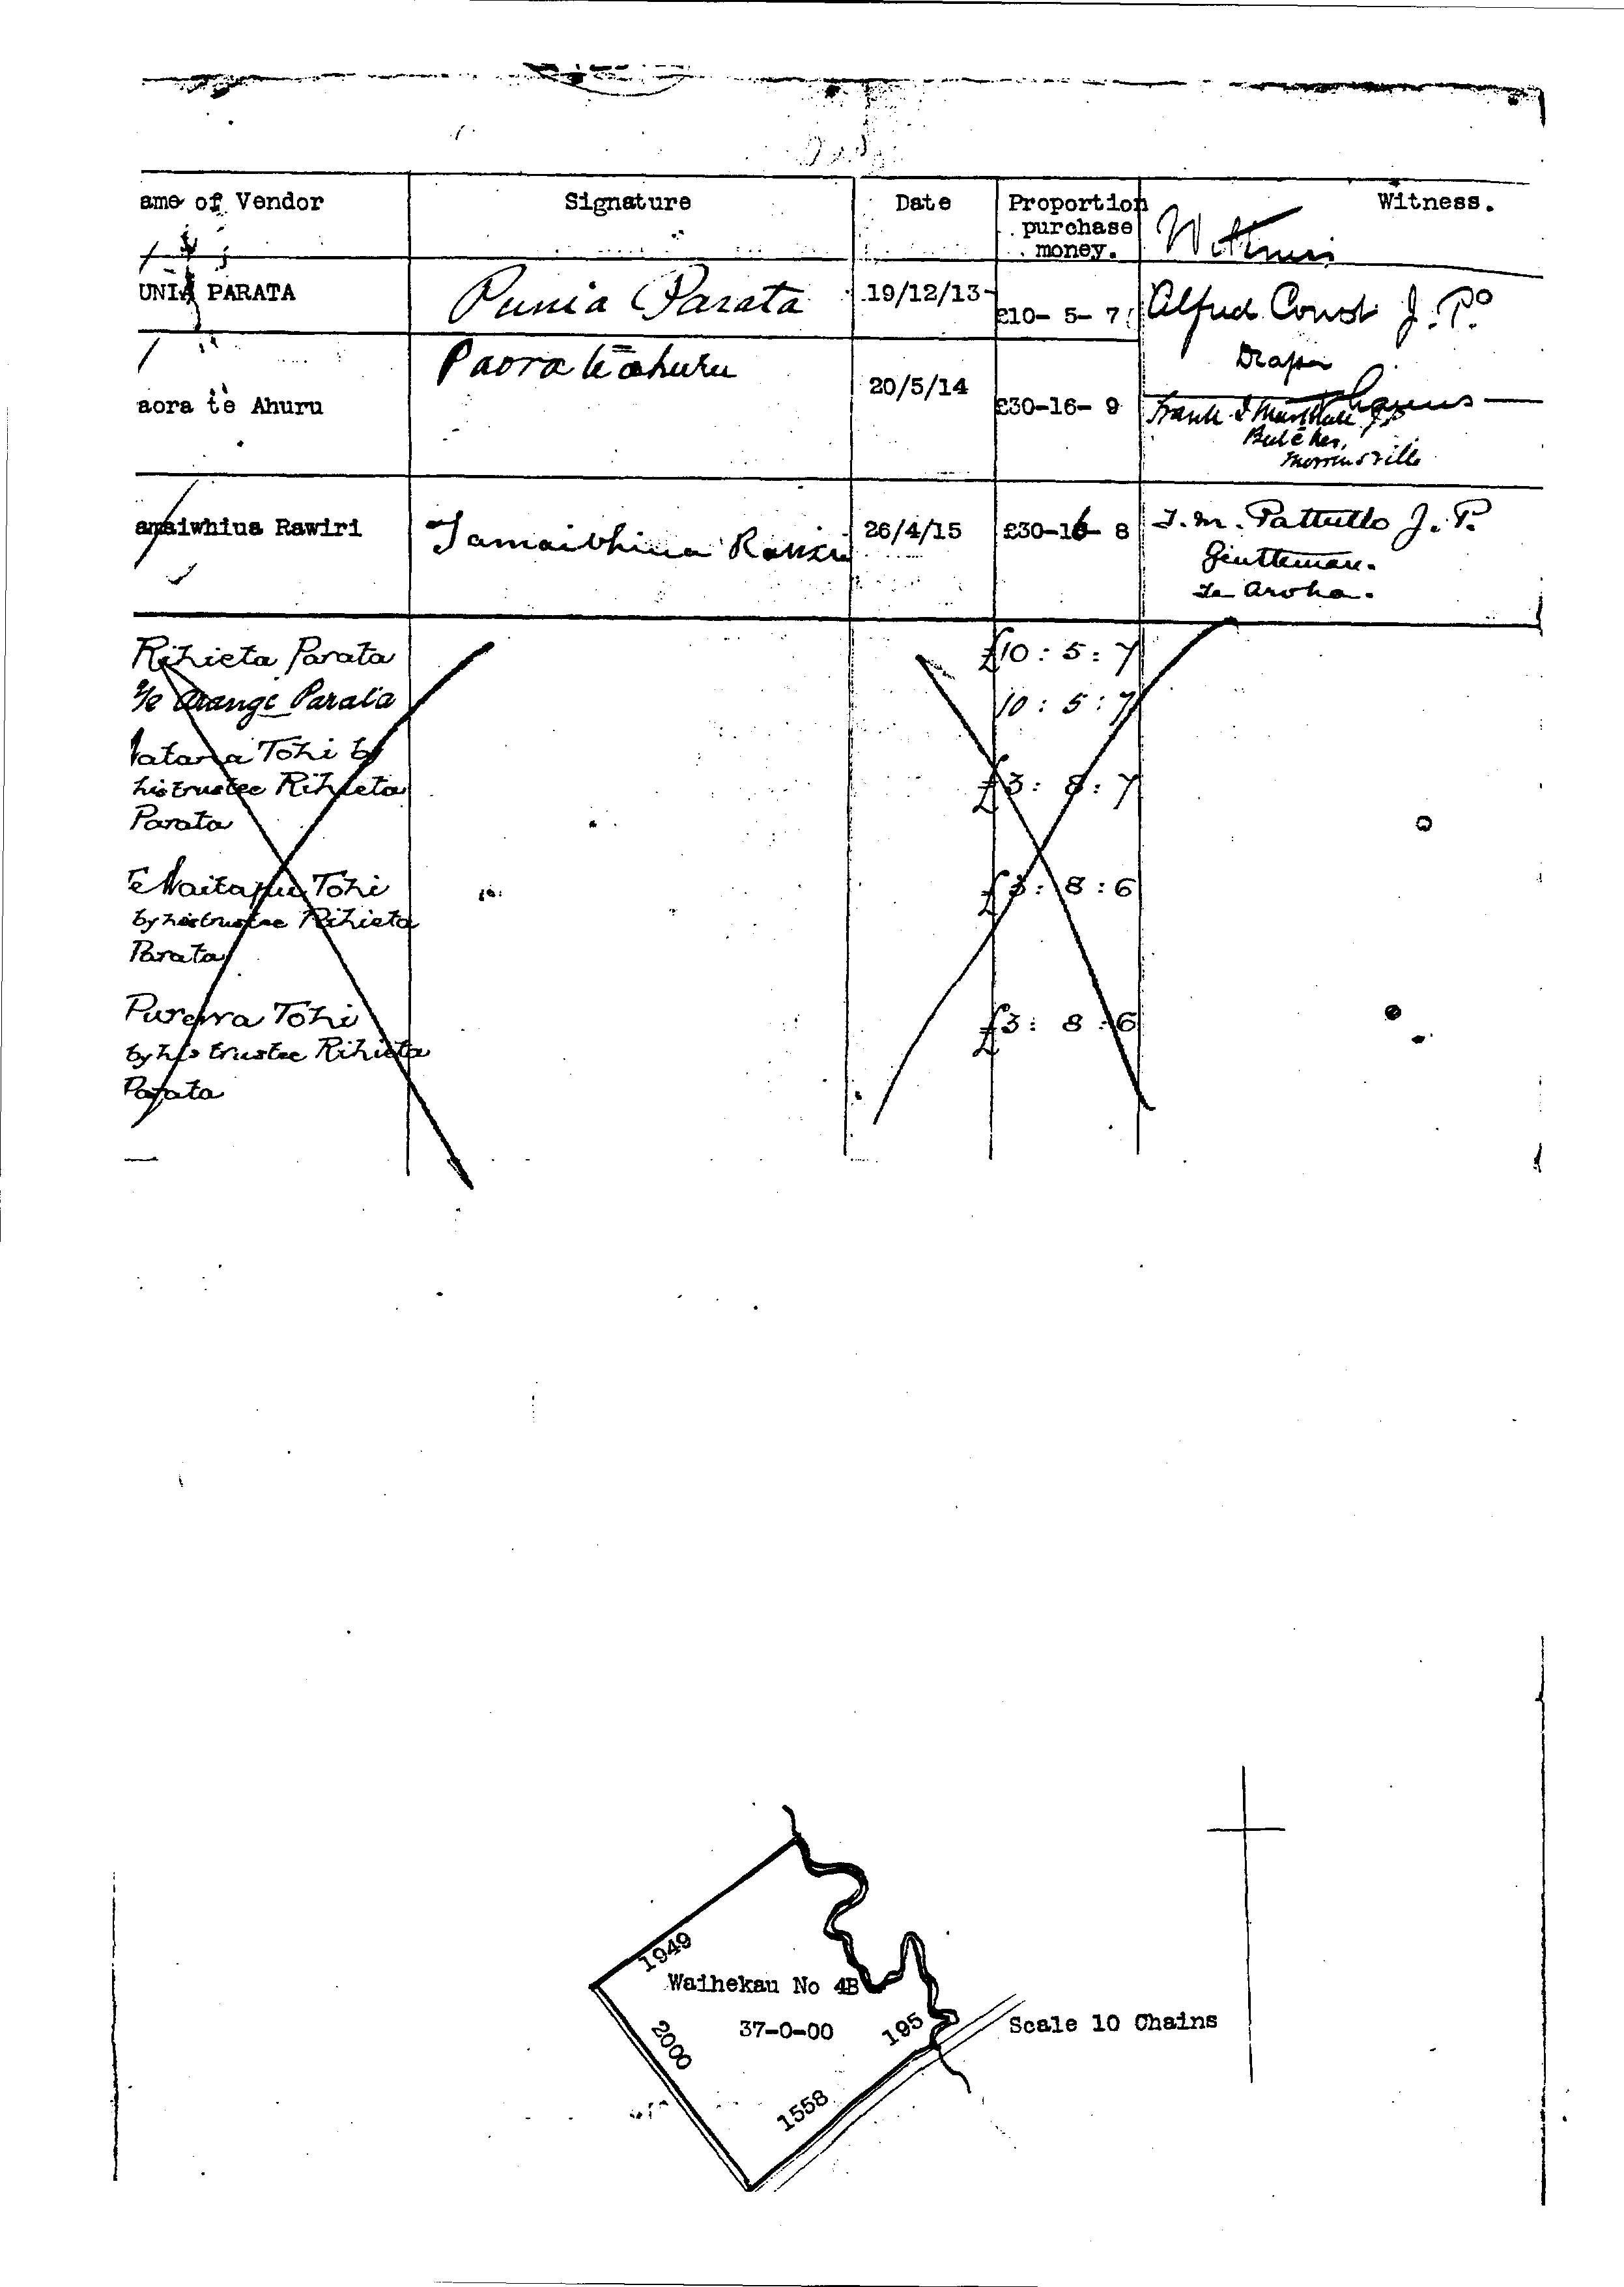 ame of Vendor Signature Date Proportion purchase money. Witness.
Witness
UNIA PARATA Punia Parata 19/12/13 £10- 5- 7 Alfred Const J.P.
Draper
aora te Ahuru Paora te ahuru 20/5/14 £30-16- 9 Frank
Butcher,
Morrinsville
amaiwhiua Rawiri Tamaiwhiua Rawiri 26/4/15 £30-16- 8 J. M. Pattullo J. P.
Gentleman.
Te Aroha.
Rihieta Parata £10 : 5 : 7
Parata 10 : 5 : 7
Tohi by
his trustee Rihieta £3 : 8 : 7
Parata
Tohi £3 : 8 : 6
by his trustee Rihieta
Parata
Purewa Tohi £3 : 8 : 6
by his trustee Rihieta
Parata
1949
Waihekau No 4B
37-0-00
195
2000
1558
Scale 10 Chains